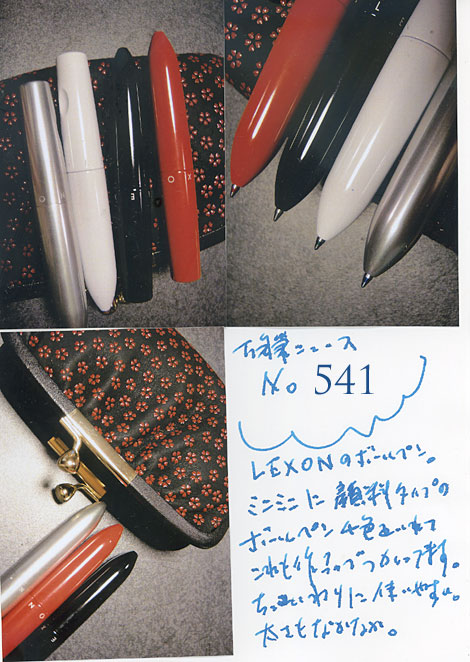 ニュース
No 541
LEXONのボールペン。
ミニミニに 顔料タイプの
ボールペン4色をいれて
これも作るのでつかってます。
ちっさいわりに使いやすい。
太さもなかなか。